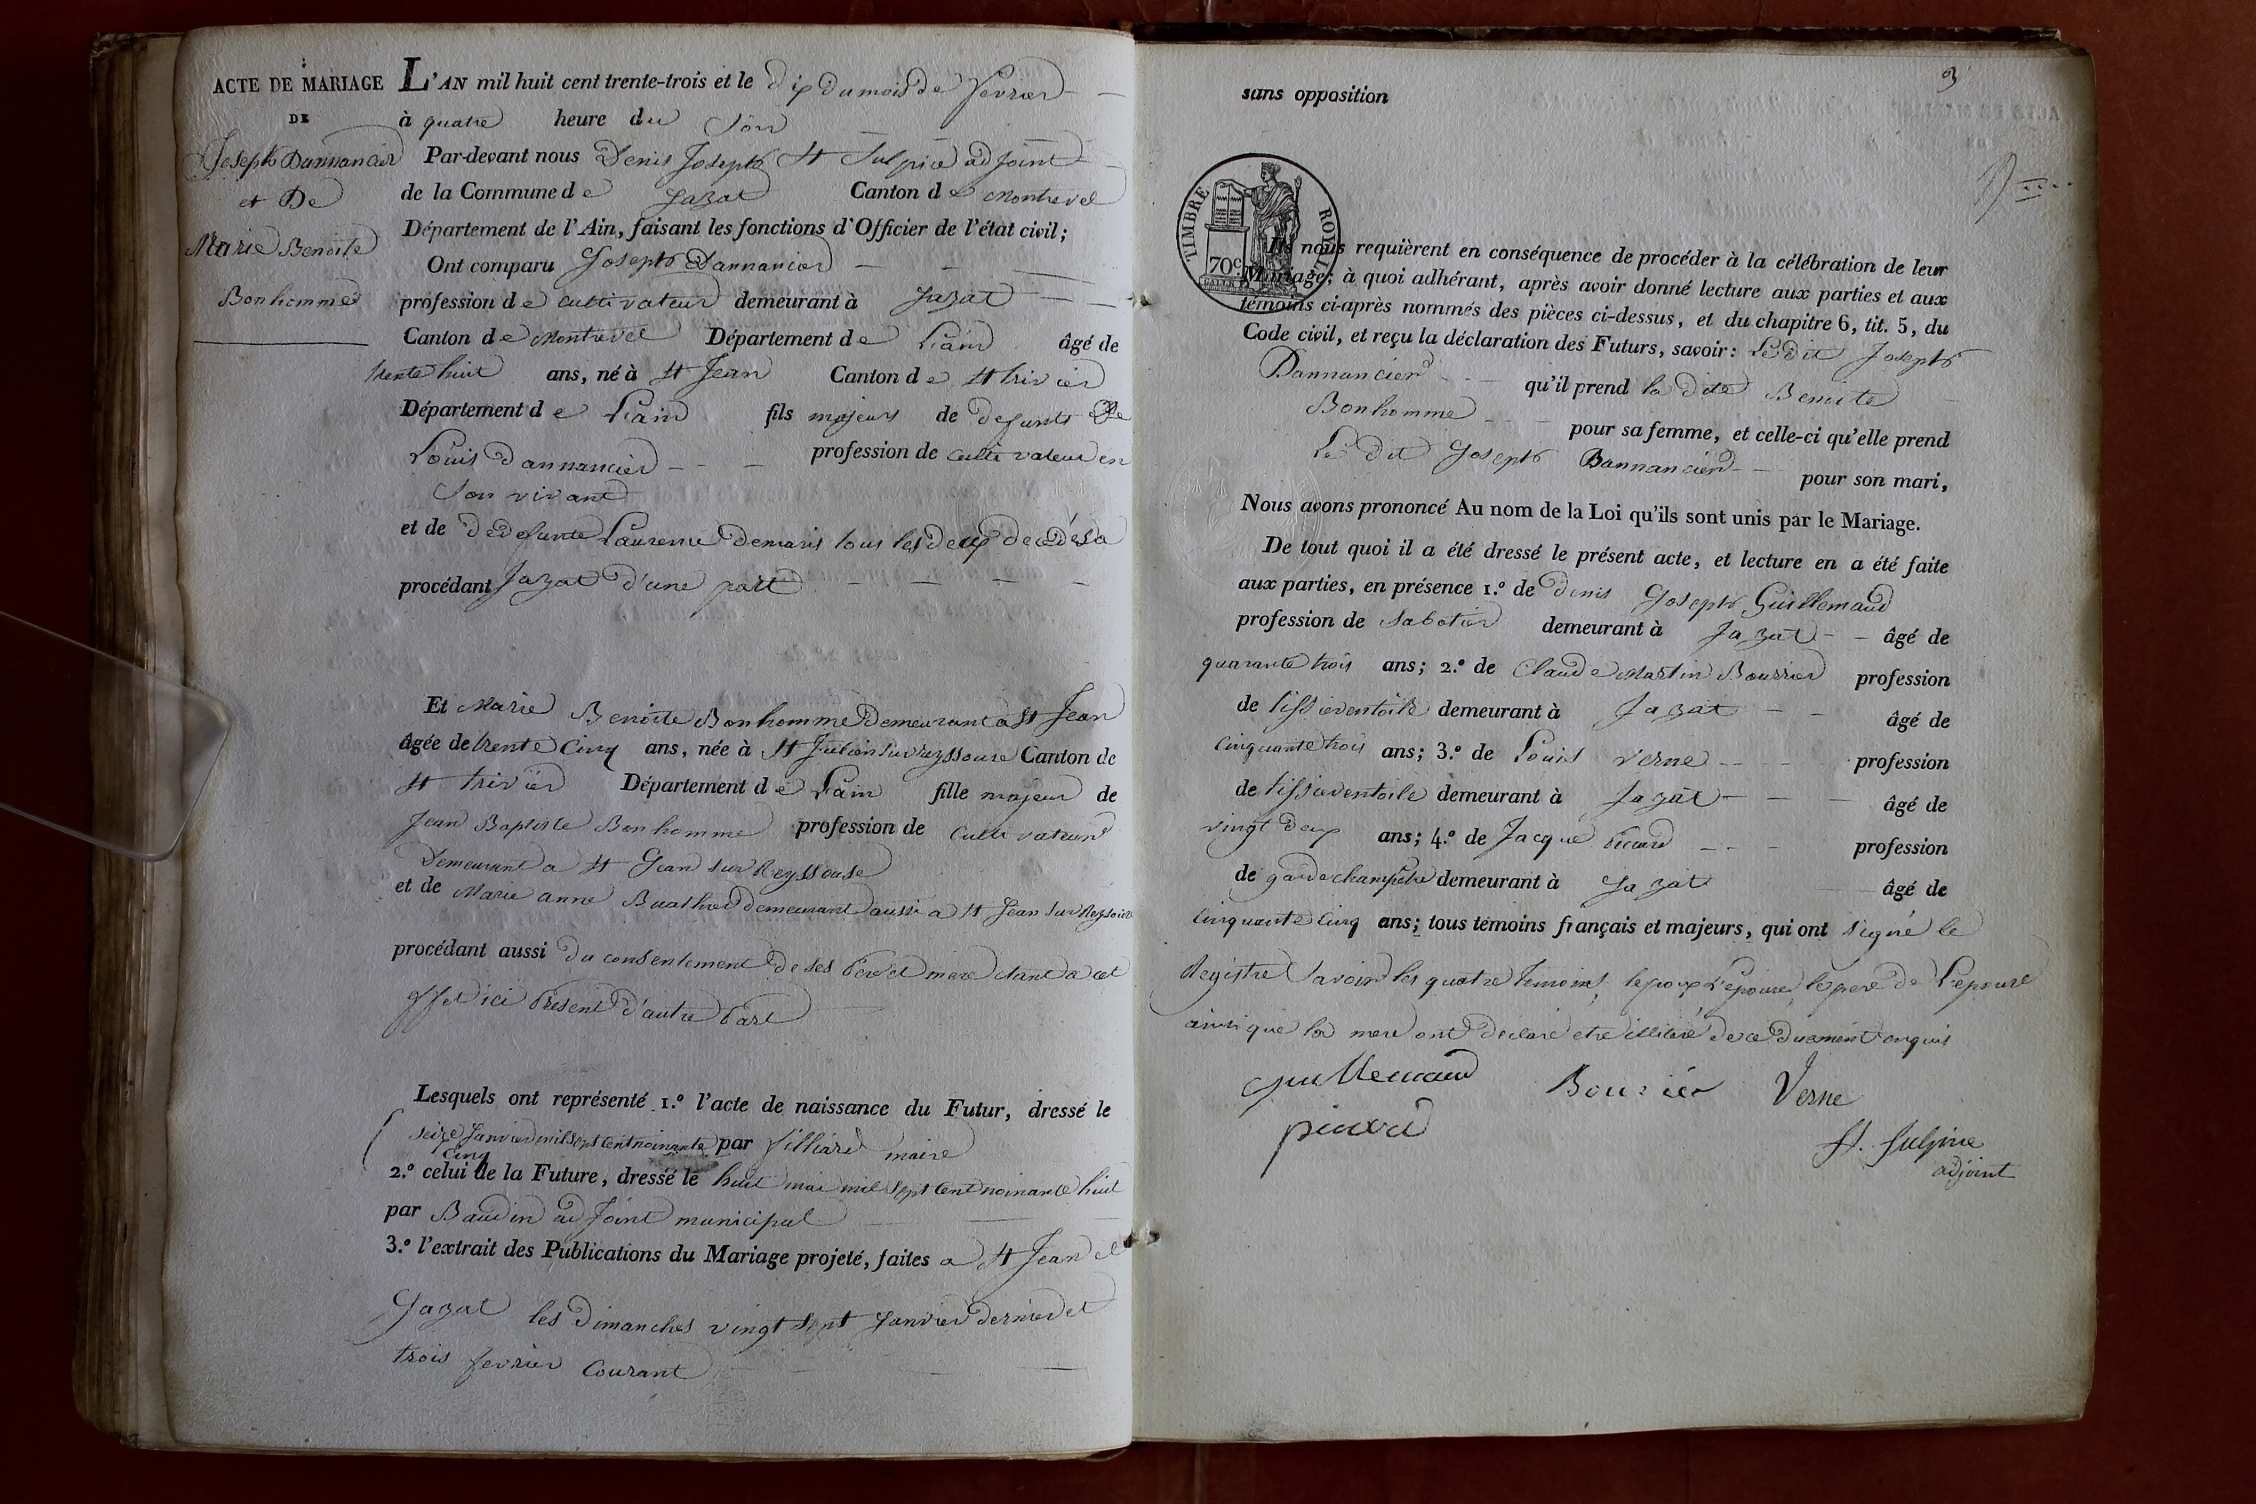 ACTE DE MARIAGE
DE
Joseph Dannancier
et De
Marie Benoite
Bonhomme
L'AN mil huit cent trente-trois et le dix du mois de fevrier
à quatre heure du soir
Par-devant nous Denis Joseph St Sulpice adjoint
de la Commune de Jazat Canton de Montrevel
Département de l'Ain, faisant les fonctions d'Officier de l'état civil;
Ont comparu Joseph Dannancier
profession de cultivateur demeurant à Jazat
Canton de Montrevel Département de L'ain âgé de
trente huit ans, né à St Jean Canton de St trivier
Département de L'ain fils majeur de defunts De
Louis Dannancier profession de cultivateur en
son vivant
et de De defunte Laurence Demaris tous les deux decedés a
procédant Jazat d'une part
Et Marie Benoite Bonhomme Demeurant a St Jean
âgée de trente Cinq ans, née à St Julien sur reyssouze Canton de
St trivier Département de L'ain fille majeur de
Jean Baptiste Bonhomme profession de Cultivateur
Demeurant a St Jean sur Reyssouse
et de Marie anne Buathier demeurant aussi a St Jean sur Reyssouze
procédant aussi du consentement De ses Père et mere etant a cet
effet ici Présent d'autre Part
Lesquels ont représenté 1.º l'acte de naissance du Futur, dressé le
seize Janvier mil sept cent noinante par Filliard maire
Cinq
2.º celui de la Future, dressé le huit mai mil sept cent noinante huit
par Baudin adjoint municipal
3.º l'extrait des Publications du Mariage projeté, faites a St Jean et
Jazat les Dimanches vingt sept Janvier dernier et
trois fevrier Courant
3
sans opposition
TIMBRE ROYAL
70c
Ils nous requièrent en conséquence de procéder à la célébration de leur
Mariage; à quoi adhérant, après avoir donné lecture aux parties et aux
témoins ci-après nommés des pièces ci-dessus, et du chapitre 6, tit. 5, du
Code civil, et reçu la déclaration des Futurs, savoir: Le dit Joseph
Dannancier qu'il prend la dite Benoite
Bonhomme pour sa femme, et celle-ci qu'elle prend
Le dit Joseph Dannancier pour son mari,
Nous avons prononcé Au nom de la Loi qu'ils sont unis par le Mariage.
De tout quoi il a été dressé le présent acte, et lecture en a été faite
aux parties, en présence 1.º de denis Joseph Guillemaud
profession de sabotier demeurant à Jazat âgé de
quarante trois ans; 2.º de Claude Martin Bourrier profession
de tissierentoile demeurant à Jazat âgé de
Cinquante trois ans; 3.º de Louis Verne profession
de tissierentoile demeurant à Jazat âgé de
vingt deux ans; 4.º de Jacque Picard profession
de garde champêtre demeurant à Jazat âgé de
Cinquante Cinq ans; tous témoins français et majeurs, qui ont signé le
Registre savoir les quatre temoins, lepoux L'epouse, le pere De L'epouse
ainsi que la mere ont Declaré etre illitéré De ce Duement enquis
guillemaud Bourier Verne
picard
St. Sulpice
adjoint